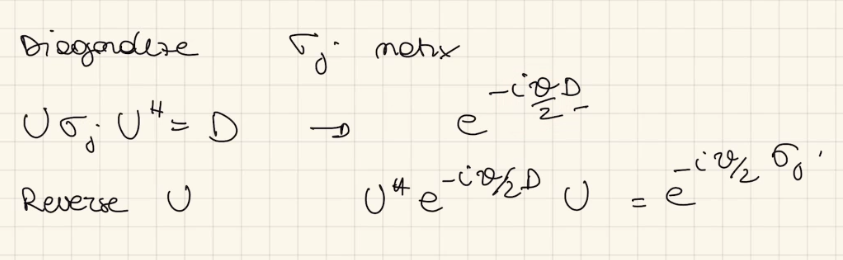 Diagonalize σ_j matrix
U σ_j U^H = D → e^{-iϑ/2 D}
Reverse U U^H e^{-iϑ/2 D} U = e^{-iϑ/2 σ_j}